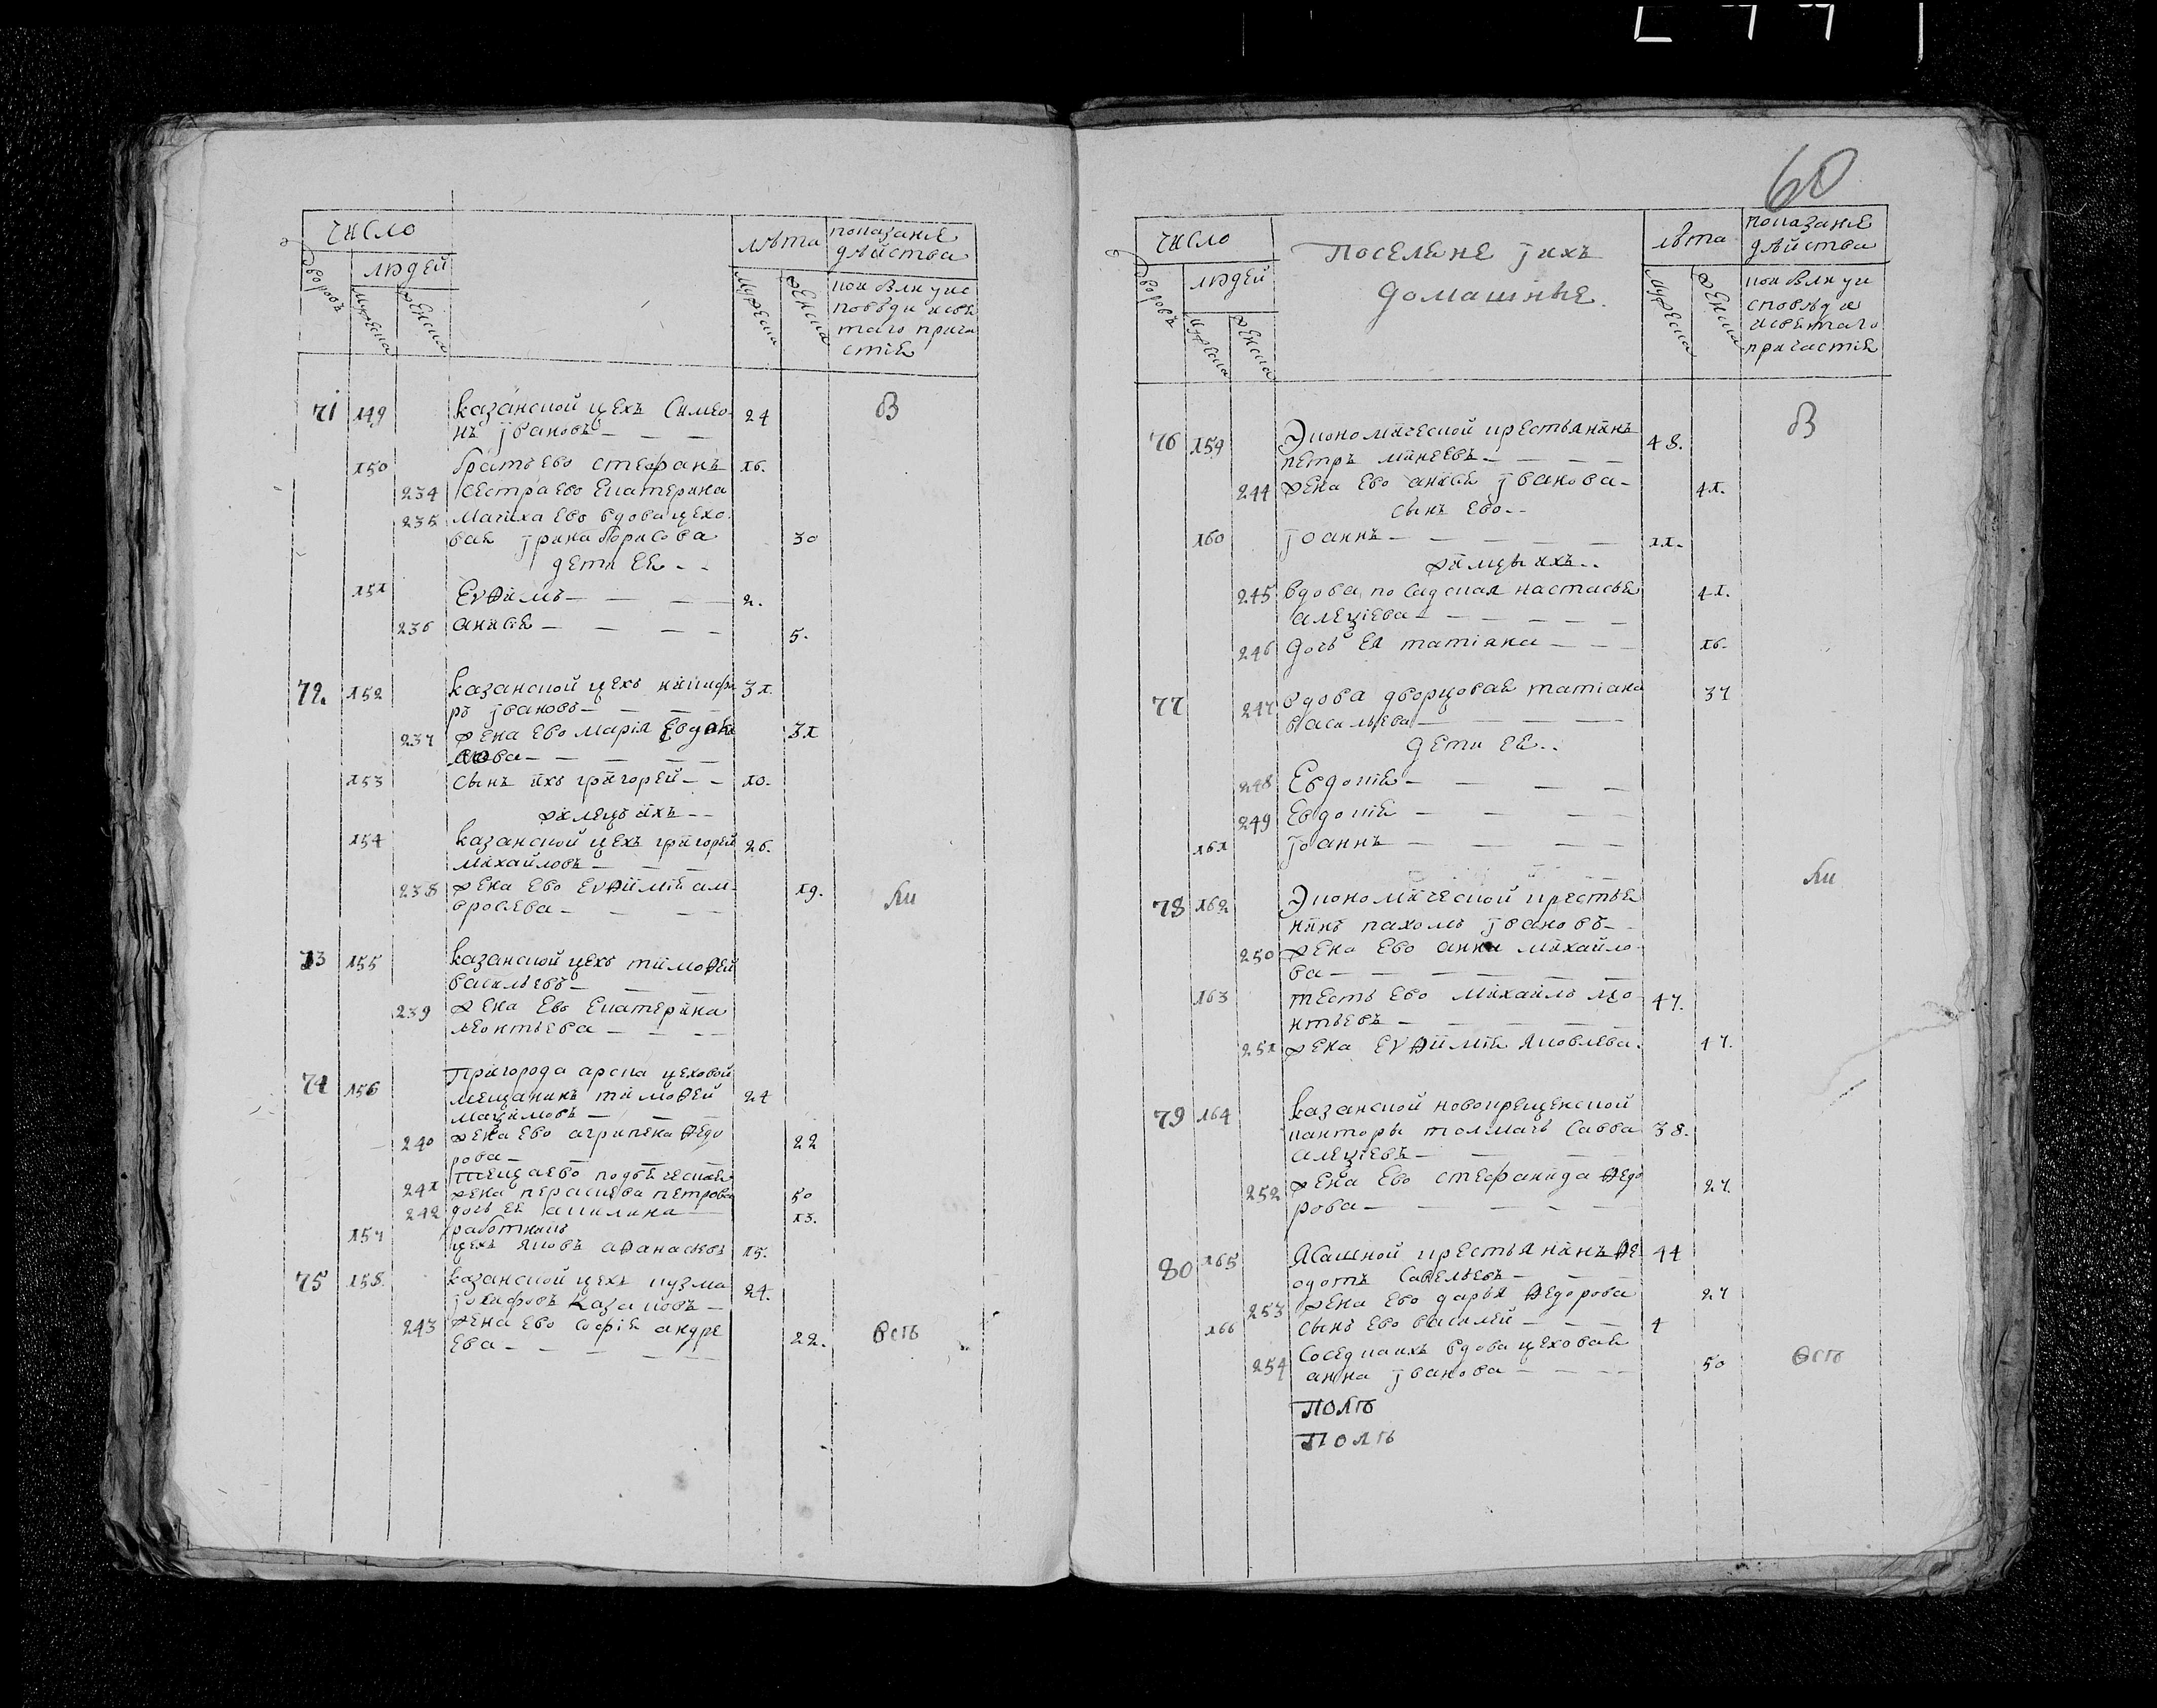 число
дворовъ
людей
мужеска
женска
лѣта
мужеска
женска
показание
дѣйства
кои были у ис
поведи и свѣ
таго прича
стиѧ
71 149 казанской цехъ Симео 24 В
нъ јвановъ
150 братъ ево стефанъ 16.
234 сестра ево Екатерина
235 Мачиха ево вдова цехо
ваѧ јрина борисова 30
дети еѧ
151 Еѵѳимъ 2.
236 анисьѧ 5.
72. 152 казанской цехъ никифо 31.
ръ јвановъ
237 жена ево Мариѧ Евдоки 31
мова
153 сынъ ихъ григорей 10.
жилецъ ихъ
154 казанской цехъ григорей 26.
михайловъ
238 жена ево Еѵѳимиѧ ам 19. ли
вросева
73 155 казанской цехъ тимоѳей
васильевъ
239 жена ево Екатерина
леонтьева
74 156 Пригорода арска цеховой
мещанинъ тимоѳей 24
маѯимовъ
240 жена ево агрипена ѳедо 22
рова
241 теща ево подъѧческаѧ
жена параскева петрова 50
242 дочь еѧ акилина 13.
157 работникъ
цехъ яковъ аѳанасьевъ 15.
75 158. казанской цехъ кузма 24.
јосифовъ Казаковъ
243 жена ево софиѧ андре 22. всть
ева
60
число
дворовъ
людей
мужеска
женска
Поселѧне јихъ
домашные.
лѣта
мужеска
женска
показание
дѣйства
кои были у и
споведи и
и свѧтаго
причастиѧ
76 159 Экономической крестьянинъ 48. В
петръ минеевъ
244 жена ево анисьѧ јванова 41.
сынъ ево
160 јоаннъ 11.
жилцы ихъ
245 вдова посадская настасьѧ 41.
алеѯіева
246 дочь ея татіяна 16.
77 247 вдова дворцоваѧ татіана 37
васильева
дети еѧ
248 Евдокиѧ
249 Евдокиѧ
161 јоаннъ
ли
78 162 Экономической крестьѧ
нинъ пахомъ јвановъ
250 жена ево анна михайло
ва
163 тесть ево михайлъ лео 47.
нтьевъ
251 жена Еѵѳимиѧ яковлева. 47.
79 164 казанской новокрещенской
канторы толмачь Савва 38.
алеѯіевъ
252 жена ево стефанида ѳедо 27.
рова
80 165 Ясашной крестьянинъ ѳе 44
одотъ Савельевъ
253 жена ево дарья ѳедорова 27
166 сынъ ево василей 4
254 соседка ихъ вдова цеховаѧ
анна јванова 50 всть
полъ
полъ